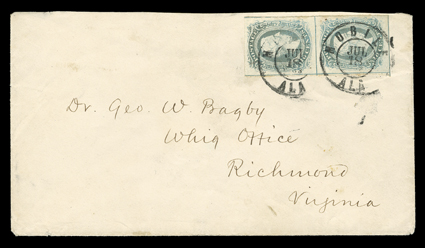 MOBILE
JUL
18
ALA
JUL
18
ALA
Dr. Geo. W. Bagby
Whig Office
Richmond
Virginia